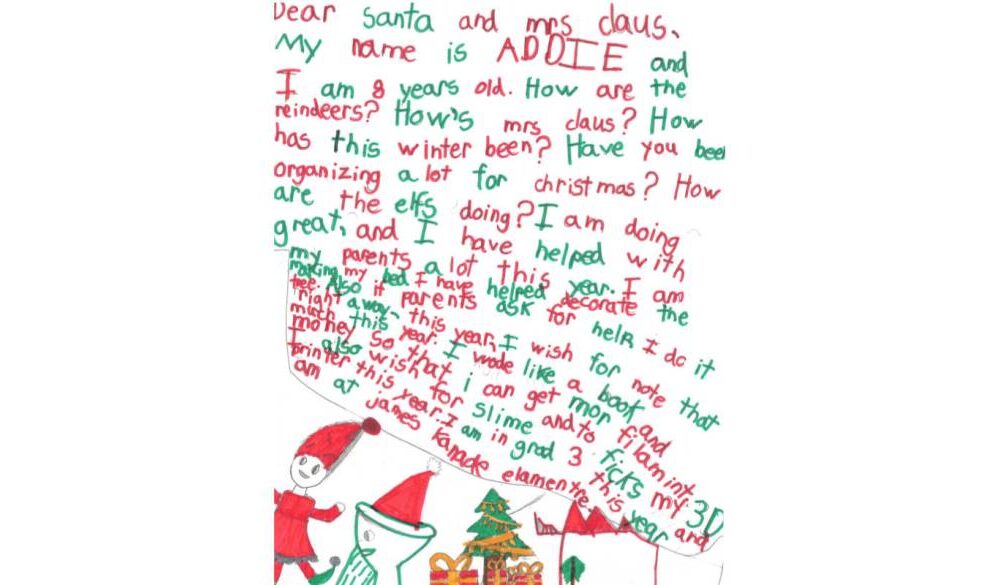 Dear Santa and mrs claus.
My name is ADDIE and
I am 8 years old. How are the
reindeers? How's mrs claus? How
has this winter been? Have you been
organizing a lot for christmas? How
are the elfs doing? I am doing
great, and I have helped with
my parents a lot this year. I am
making my bed I have helped decorate the
tree. Also if parents ask for help I do it
right away. this year, I wish for note that
much this year. I wode like a book and
money so that i can get mor filamint.
I also wish for slime and to ficks my 3D
printer this year. I am in grad 3 this year and
am at james kanade elamentre.